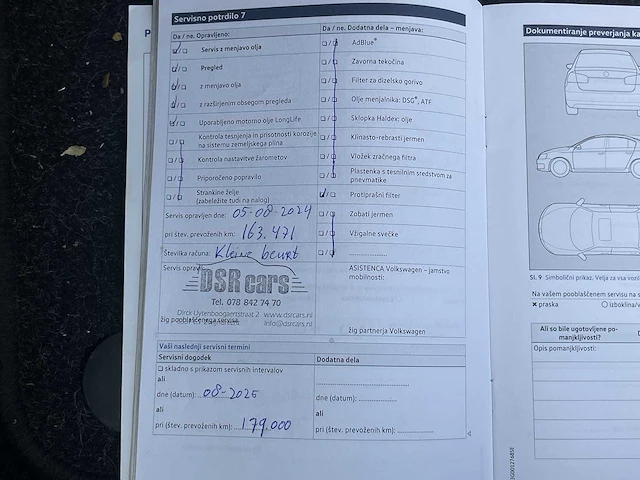 Servisno potrdilo 7
Da / ne. Opravljeno:
Servis z menjavo olja
Pregled
z menjavo olja
z razširjenim obsegom pregleda
Uporabljeno motorno olje LongLife
Kontrola tesnjenja in prisotnosti korozije
na sistemu zemeljskega plina
Kontrola nastavitve žarometov
Priporočeno popravilo
Strankine želje
(zabeležite tudi na nalog)
Servis opravljen dne: 05-08-2024
pri štev. prevoženih km: 163.471
Številka računa: Kleine beurt
Servis opravil:
DSR cars
Tel. 078 842 74 70
Dirck Uytenboogaertstraat 2 www.dsrcars.nl
info@dsrcars.nl
žig pooblaščenega servisa
Da / ne. Dodatna dela – menjava:
AdBlue®
Zavorna tekočina
Filter za dizelsko gorivo
Olje menjalnika: DSG®, ATF
Sklopka Haldex: olje
Klinasto-rebrasti jermen
Vložek zračnega filtra
Plastenka s tesnilnim sredstvom za
pnevmatike
Protiprašni filter
Zobati jermen
Vžigalne svečke
ASISTENCA Volkswagen – jamstvo
mobilnosti:
žig partnerja Volkswagen
Vaši naslednji servisni termini
Servisni dogodek
skladno s prikazom servisnih intervalov
ali
dne (datum): 08-2025
ali
pri (štev. prevoženih km): 179.000
Dodatna dela
dne (datum):
ali
pri (štev. prevoženih km):
Dokumentiranje preverjanja ka
Sl. 9 Simbolični prikaz. Velja za vsa vozil
Na vašem pooblaščenem servisu na s
x praska O izboklina/v
Ali so bile ugotovljene po-
manjkljivosti?
Opis pomanjkljivosti: